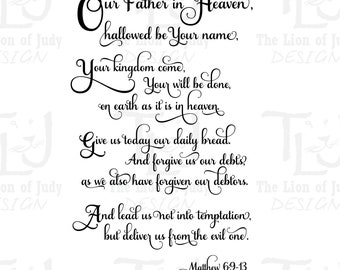 Our Father in Heaven,
hallowed be Your name.
Your kingdom come,
Your will be done,
on earth as it is in heaven.
Give us today our daily bread.
And forgive us our debts,
as we also have forgiven our debtors.
And lead us not into temptation,
but deliver us from the evil one.
Matthew 6:9-13
The Lion of Judy
DESIGN